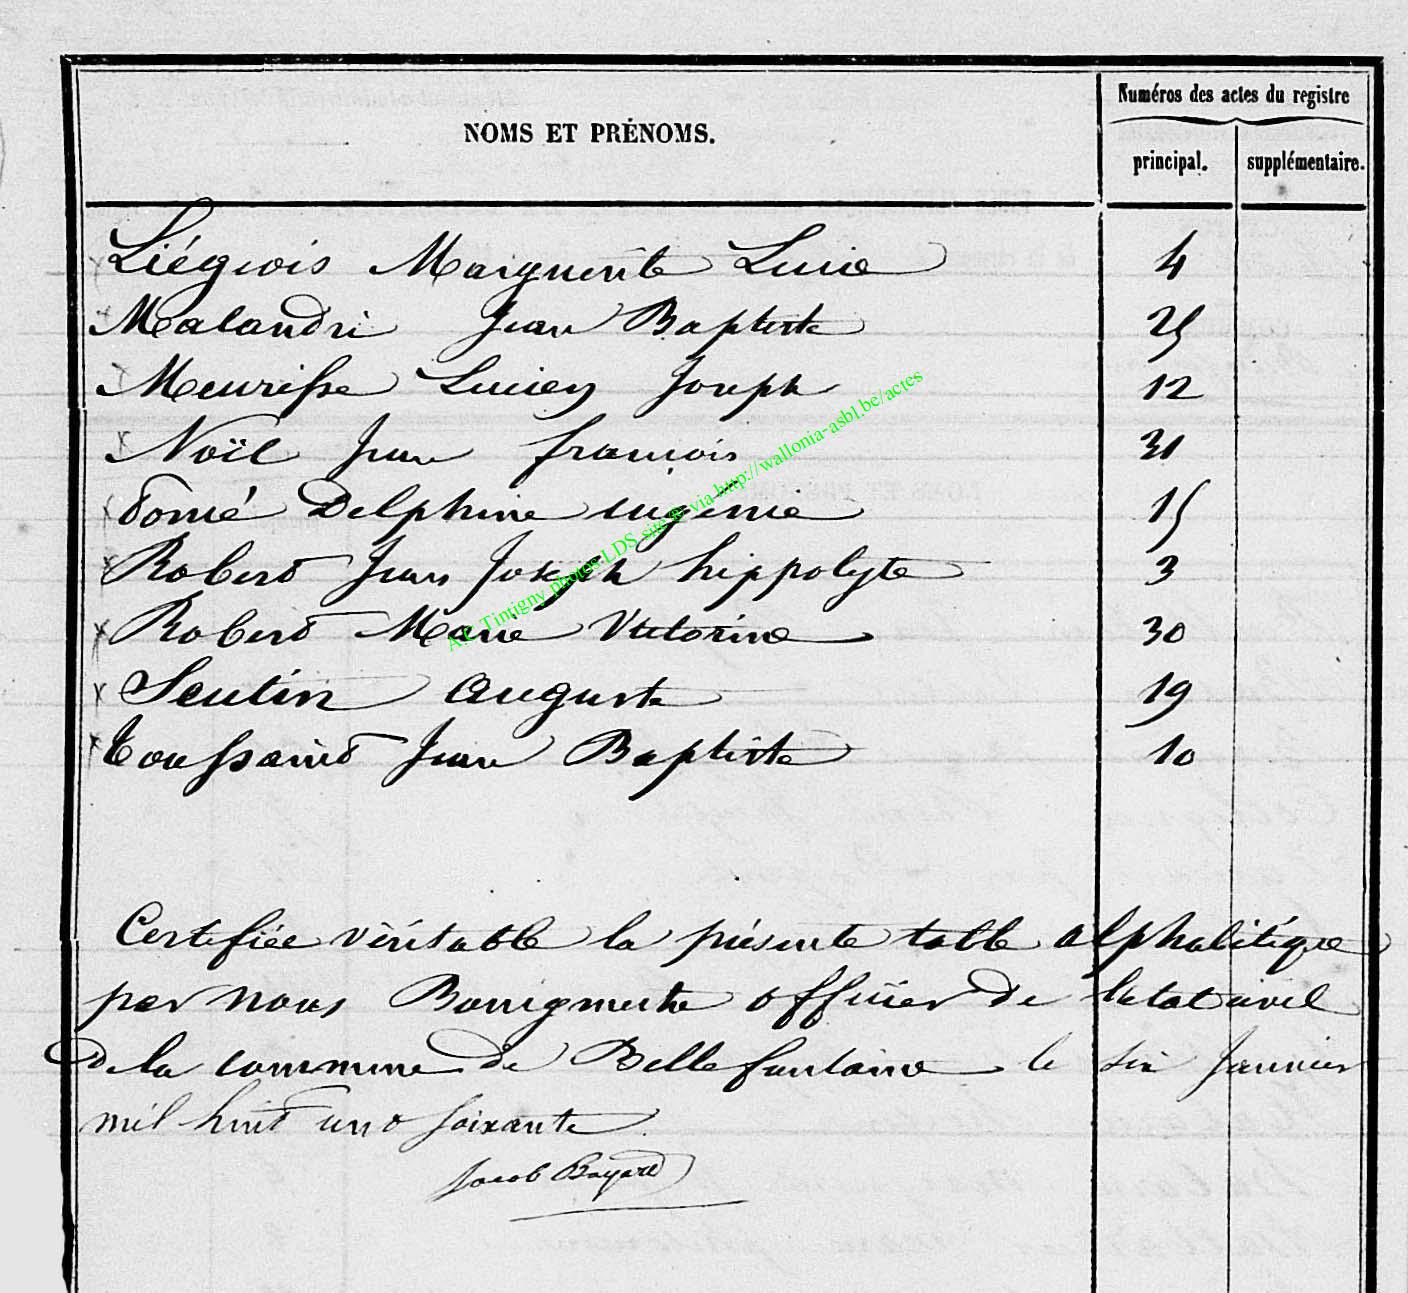 Numéros des actes du registre
NOMS ET PRÉNOMS.
principal. supplémentaire.
Liégeois Marguerite Lucie 4
Malandri Jean Baptiste 25
Meurisse Lucien Joseph 12
Noël Jean françois 31
Pomé Delphine eugénie 15
Robert Jean Joseph hippolyte 3
Robert Marie Victorine 30
Scutin Auguste 19
Toussaint Jean Baptiste 10
Certifiée véritable la présente table alphabétique
par nous Bourgmestre officier de l'état civil
de la commune de Bellefontaine le six Janvier
mil huit cent soixante
Jacob Bayard
A.E. Tintigny photos LDS site @ via http://wallonia-asbl.be/actes